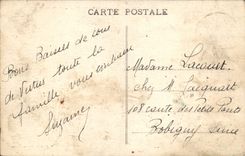 CARTE POSTALE
Bons Baisers de vous
de Vertus toute la
famille vous embrasse
Suzanne
Madame Lacourt
chez M. Jacquart
108 route des Petits Ponts
Bobigny Seine